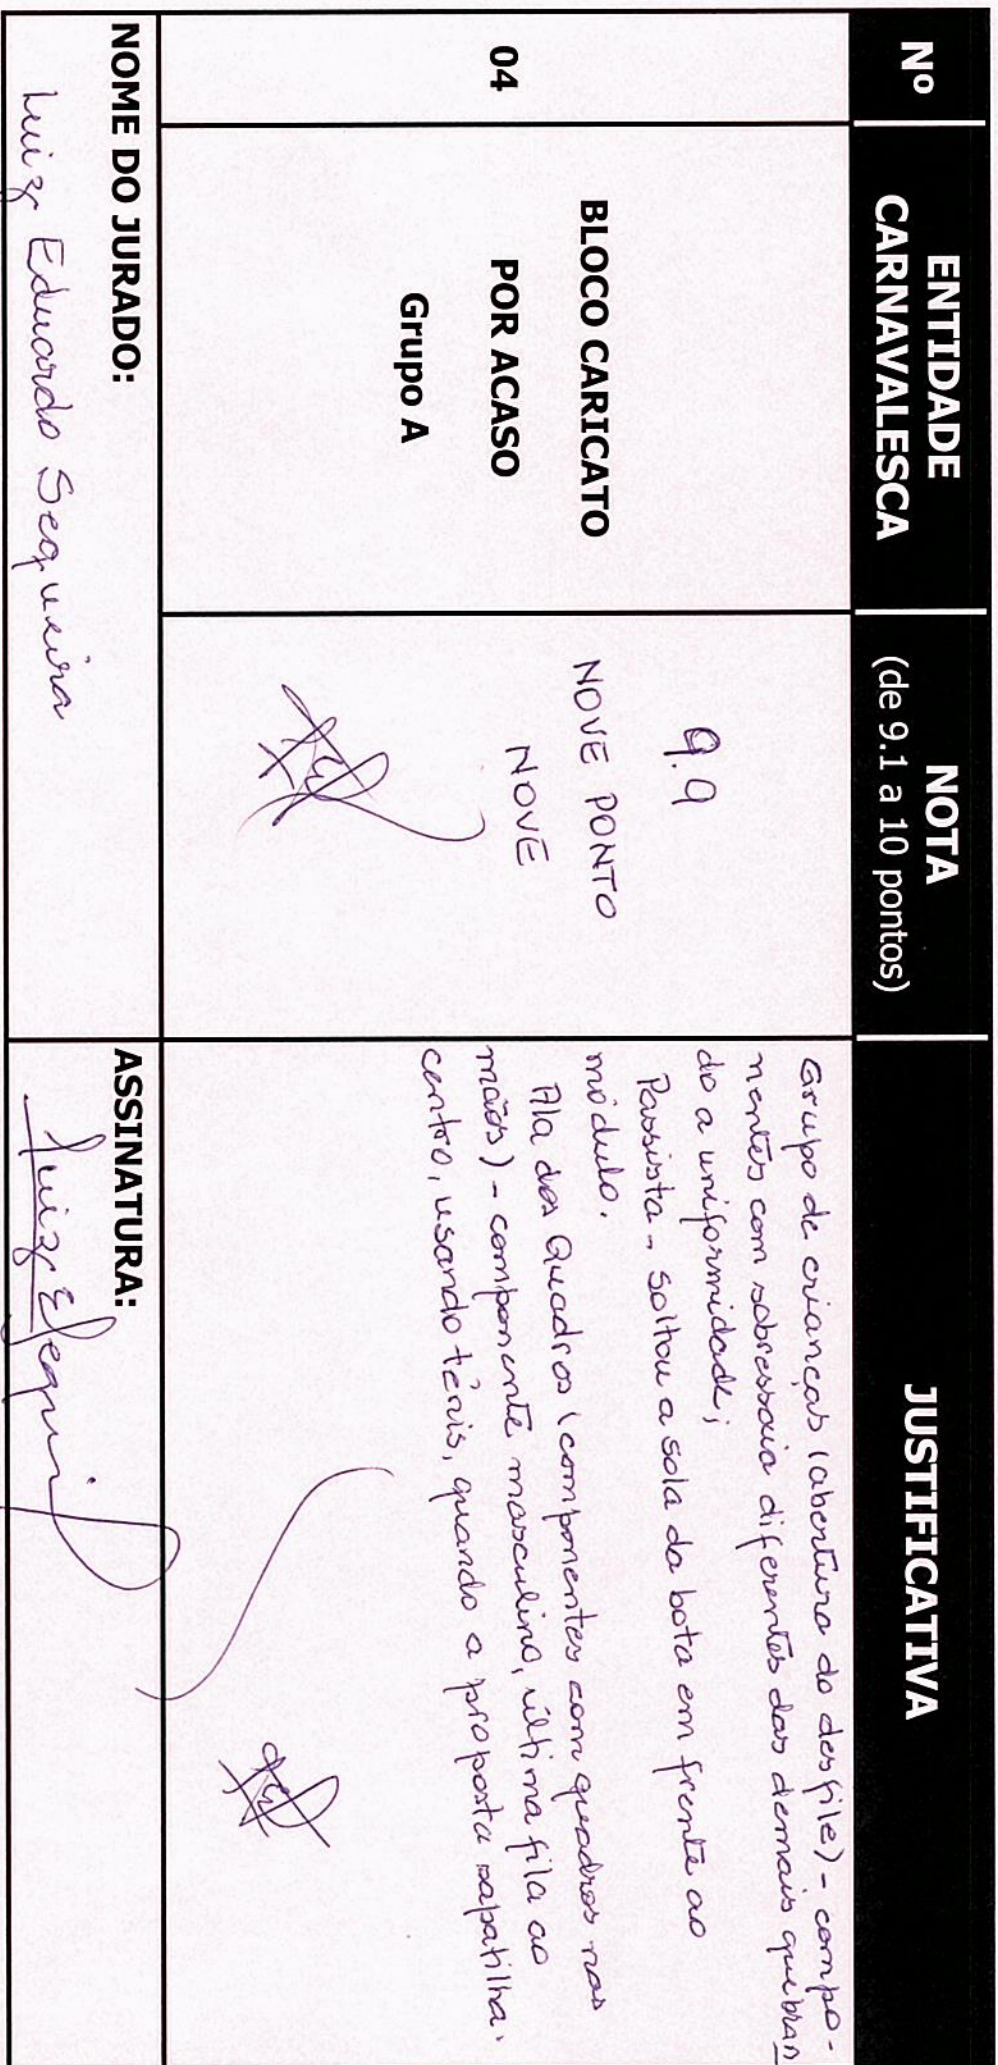 Nº
ENTIDADE
CARNAVALESCA
NOTA
(de 9.1 a 10 pontos)
JUSTIFICATIVA
04
BLOCO CARICATO
POR ACASO
Grupo A
9.9
NOVE PONTO
NOVE
Grupo de crianças (abertura do desfile) - compo-
nentes com sobressaia diferentes das demais quebran
do a uniformidade;
Passista - soltou a sola da bota em frente ao
módulo.
Ala dos Quadros (componentes com quadros nas
mãos) - componente masculino, última fila ao
centro, usando tênis, quando a proposta sapatilha.
NOME DO JURADO:
Luiz Eduardo Sequeira
ASSINATURA: